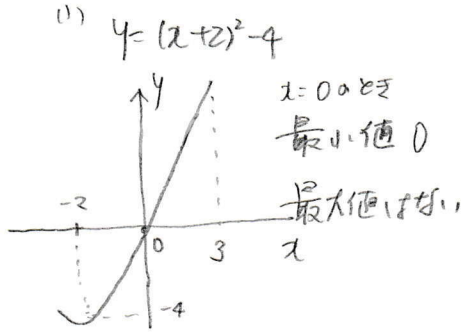 (1) y=(x+2)²-4
y
x=0のとき
最小値 0
最大値はない
-2
0
3
x
-4